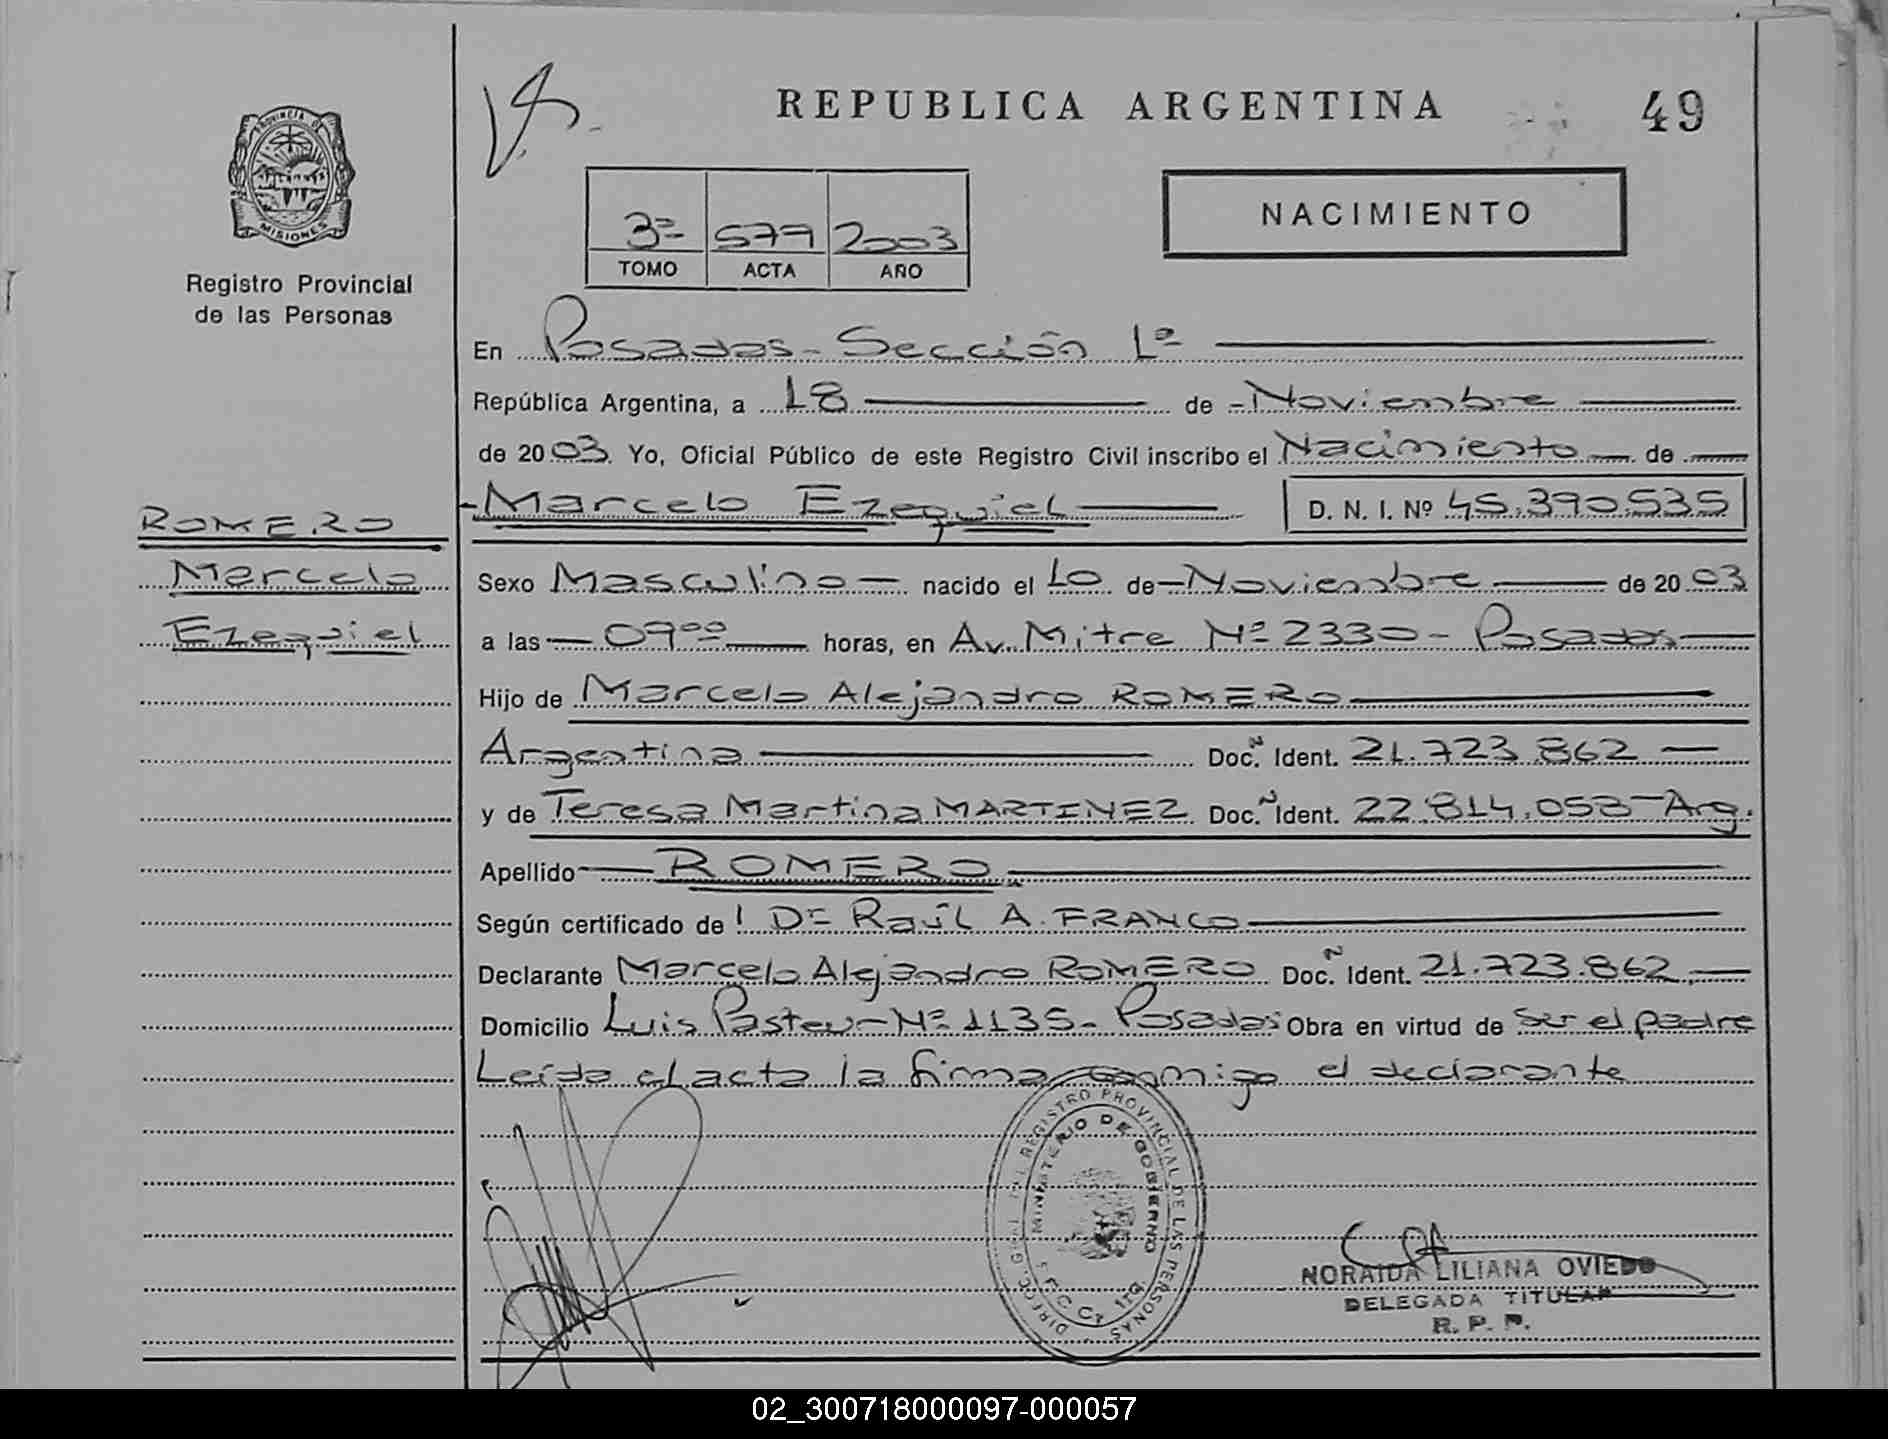 REPUBLICA ARGENTINA
49
PROVINCIA DE
MISIONES
Registro Provincial
de las Personas
NACIMIENTO
3º 577 2003
TOMO ACTA AÑO
En Posadas - Sección 1º
República Argentina, a 18 de Noviembre
de 2003. Yo, Oficial Público de este Registro Civil inscribo el Nacimiento de
Marcelo Ezequiel D. N. I. Nº 45.390.535
ROMERO
Marcelo
Ezequiel
Sexo Masculino nacido el 10 de Noviembre de 2003
a las 09ºº horas, en Av. Mitre Nº 2330 - Posadas
Hijo de Marcelo Alejandro ROMERO
Argentina Doc. N Ident. 21.723.862
y de Teresa Martina MARTINEZ Doc. N Ident. 22.814.053 - Arg.
Apellido ROMERO
Según certificado de l Dr Raúl A. FRANCO
Declarante Marcelo Alejandro ROMERO Doc. N Ident. 21.723.862
Domicilio Luis Pasteur Nº 1135 - Posadas Obra en virtud de ser el padre
Leída el acta la firma conmigo el declarante
REGISTRO PROVINCIAL DE LAS PERSONAS
MINISTERIO DE GOBIERNO
NORAIDA LILIANA OVIEDO
DELEGADA TITULAR
R. P. P.
02_300718000097-000057